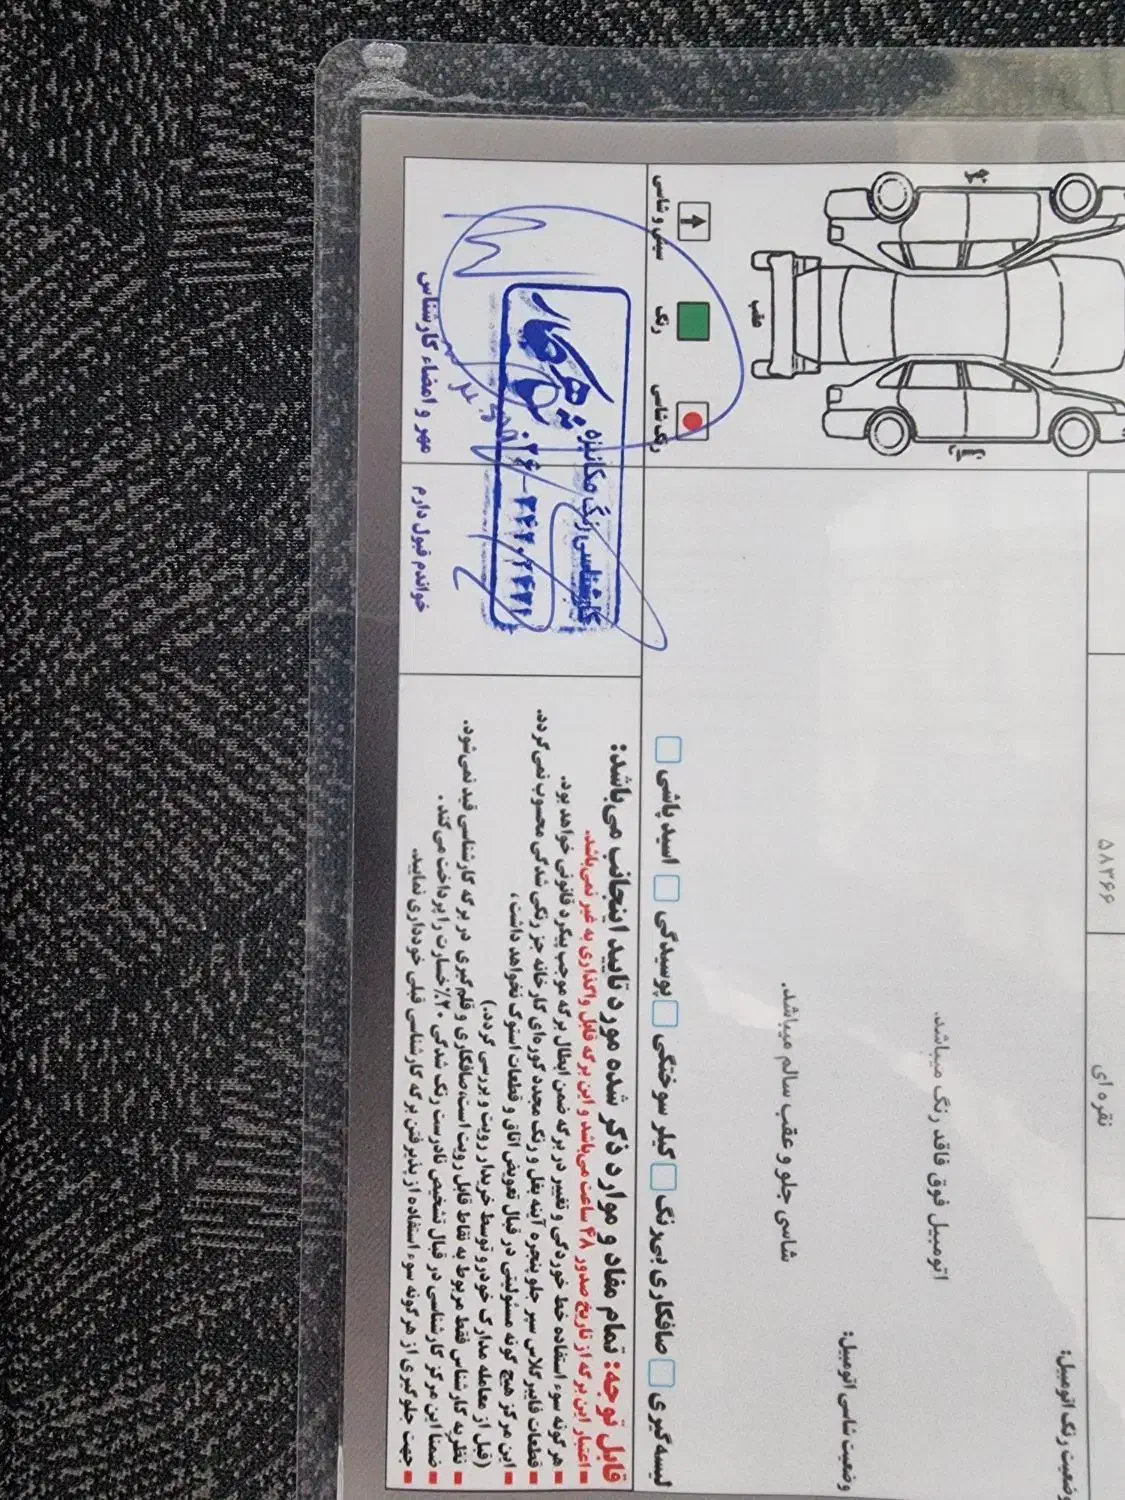 ۵۸۳۶۶
نقره ای
وضعیت رنگ اتومبیل:
اتومبیل فوق فاقد رنگ میباشد.
وضعیت شاسی اتومبیل:
شاسی جلو و عقب سالم میباشد.
عقب
سینی و شاسی
رنگ
رنگ شاسی
لیسه گیری
صافکاری بی‌رنگ
گیلر سوختگی
پوسیدگی
اسید پاشی
قابل توجه: تمام مفاد و موارد ذکر شده مورد تایید اینجانب می‌باشد:
اعتبار این برگه از تاریخ صدور ۴۸ ساعت می‌باشد و این برگه قابل واگذاری به غیر نمی‌باشد.
هر گونه سوء استفاده خط خوردگی و تغییر در برگه ضمن ابطال برگه موجب پیگرد قانونی خواهد بود.
قطعات فایبرگلاس سپر جلو پنجره آینه بغل و رنگ مجدد کوره‌ای کارخانه جز رنگی شدگی محسوب نمی‌گردد.
این مرکز هیچ گونه مسئولیتی در قبال تعویض اتاق و قطعات استوک نخواهد داشت،
(قبل از معامله مدارک خودرو توسط خریدار رویت و بررسی گردد.)
نظریه کارشناس فقط مربوط به نقاط قابل رویت است، صافکاری و قلم‌گیری در برگه کارشناسی قید نمی‌شود.
ضمنا این مرکز کارشناسی در قبال تشخیص نادرست رنگ شدگی ۲۰٪ خسارت را پرداخت می‌کند.
جهت جلوگیری از هرگونه سوء استفاده از پذیرفتن برگه کارشناسی قبلی خودداری نمایید.
کارشناسی رنگ مکانیزه
خواندم قبول دارم
مهر و امضاء کارشناس